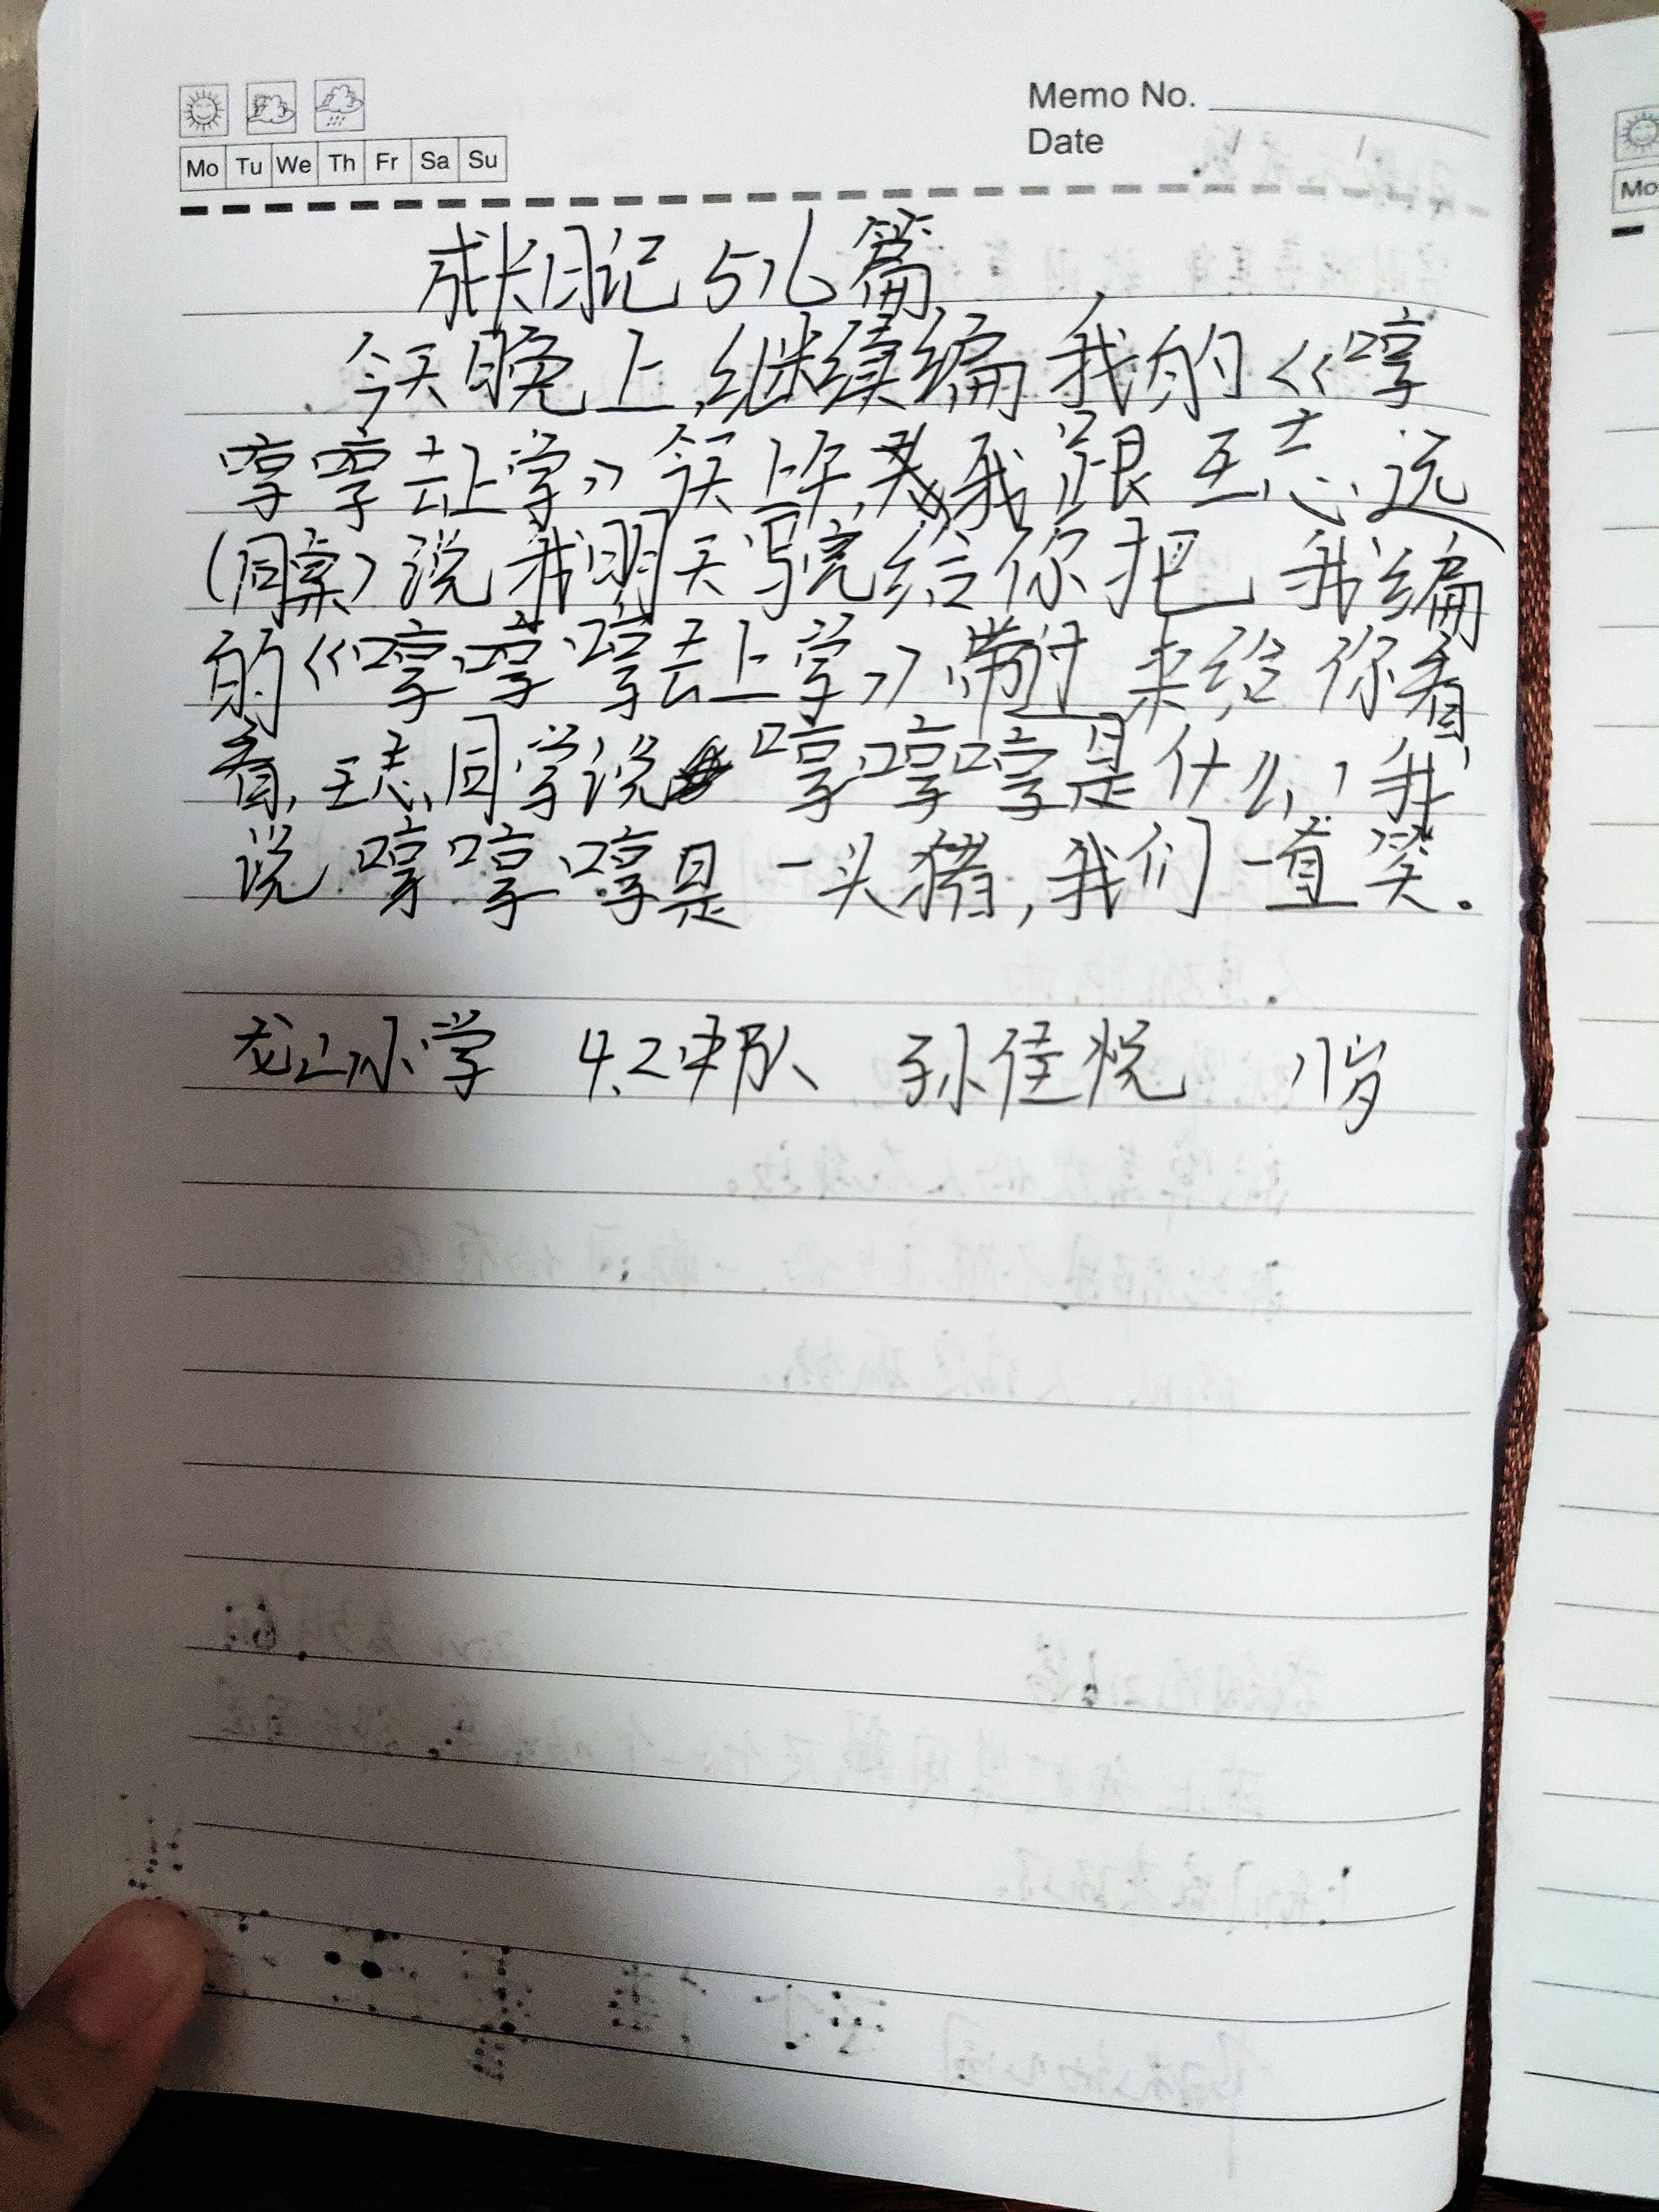 Memo No.
Mo Tu We Th Fr Sa Su
Date
成长日记 516篇
今天晚上,继续编我的《哼
哼哼去上学》今天上午,我跟王志远
(同桌)说我明天写完给你把我编
的《哼哼哼去上学》带过来给你看
看,王志同学说 哼哼哼是什么,我
说哼哼哼是一头猪,我们一直笑.
龙山小学 4.2中队 孙佳悦 11岁
Mo